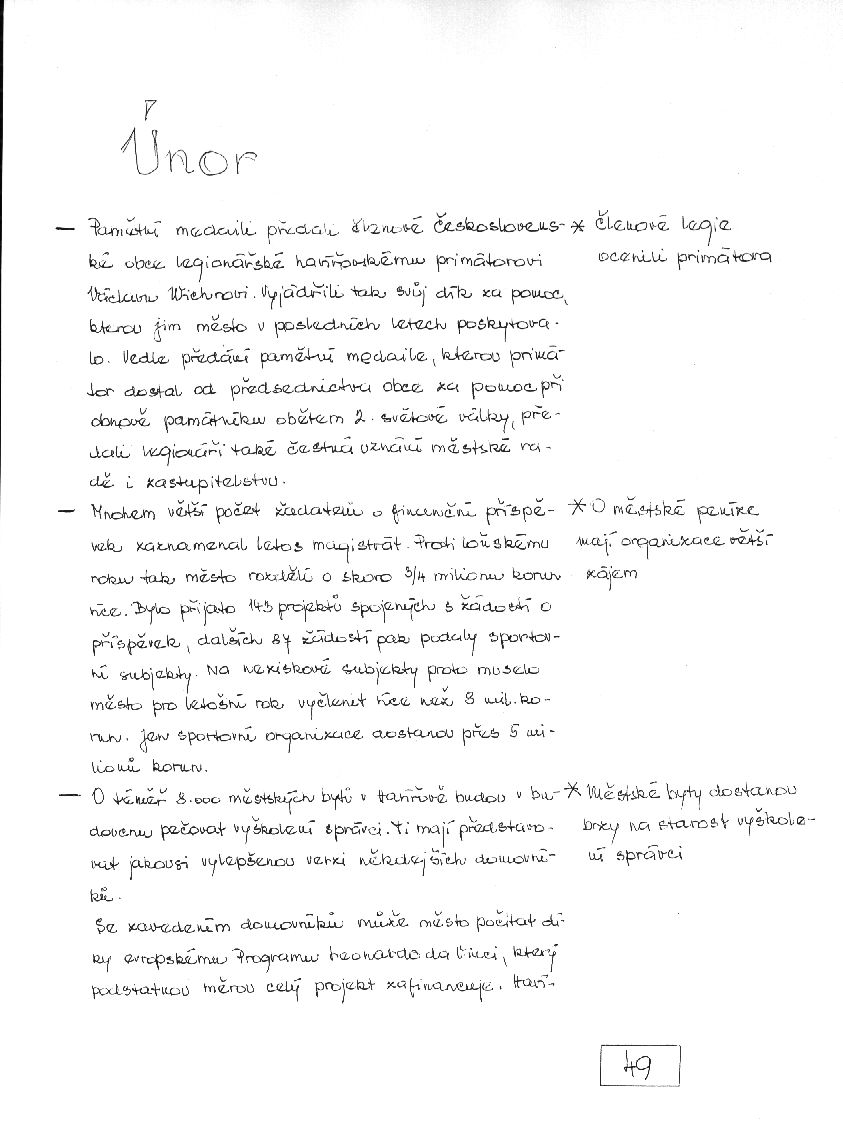 Únor
— Pamětní medaili předali členové Československ- * Členové legie
ké obce legionářské havířovskému primátorovi ocenili primátora
Václavu Wichrovi. Vyjádřili tak svůj dík za pomoc,
kterou jim město v posledních letech poskytova-
lo. Vedle předání pamětní medaile, kterou primá-
tor dostal od předsednictva obce za pomoc při
obnově památníku obětem 2. světové války, pře-
dali legionáři také čestná uznání městské ra-
dě i zastupitelstvu.
— Mnohem větší počet žadatelů o finanční příspě- * O městské peníze
vek zaznamenal letos magistrát. Proti loňskému mají organizace větší
roku tak město rozdělí o skoro 3/4 milionu korun zájem
více. Bylo přijato 143 projektů spojených s žádostí o
příspěvek, dalších 87 žádostí pak podaly sportov-
ní subjekty. Na neziskové subjekty proto muselo
město pro letošní rok vyčlenit více než 8 mil. ko-
run. Jen sportovní organizace dostanou přes 5 mi-
lionů korun.
— O téměř 8.000 městských bytů v Havířově budou v bu- * Městské byty dostanou
doucnu pečovat vyškolení správci. Ti mají představo- brzy na starost vyškole-
vat jakousi vylepšenou verzi někdejších domovní- ní správci
ků.
Se zavedením domovníků může město počítat dí-
ky evropskému Programu Leonardo da Vinci, který
podstatnou měrou celý projekt zafinancuje. Haví-
49